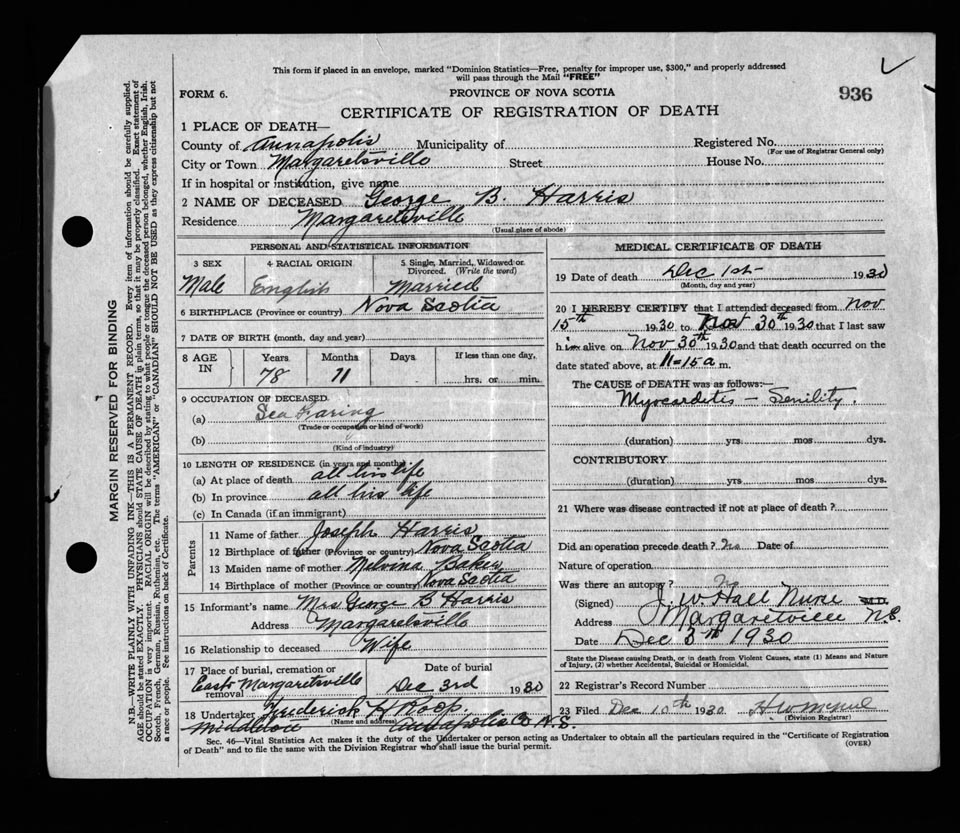 This form if placed in an envelope, marked "Dominion Statistics—Free, penalty for improper use, $300," and properly addressed
will pass through the Mail "FREE"
FORM 6.
PROVINCE OF NOVA SCOTIA
936
CERTIFICATE OF REGISTRATION OF DEATH
1 PLACE OF DEATH—
County of Annapolis Municipality of Registered No.
(For use of Registrar General only)
City or Town Margaretsville Street House No.
If in hospital or institution, give name
2 NAME OF DECEASED George B. Harris
Residence Margaretsville
(Usual place of abode)
PERSONAL AND STATISTICAL INFORMATION
3 SEX 4 RACIAL ORIGIN 5 Single, Married, Widowed or Divorced. (Write the word)
Male English Married
6 BIRTHPLACE (Province or country) Nova Scotia
7 DATE OF BIRTH (month, day and year)
8 AGE IN Years Months Days If less than one day,
78 11 hrs. or min.
9 OCCUPATION OF DECEASED
(a) Sea Faring
(Trade or occupation or kind of work)
(b)
(Kind of industry)
10 LENGTH OF RESIDENCE (in years and months)
(a) At place of death all his life
(b) In province all his life
(c) In Canada (if an immigrant)
Parents
11 Name of father Joseph Harris
12 Birthplace of father (Province or country) Nova Scotia
13 Maiden name of mother Melvina Baker
14 Birthplace of mother (Province or country) Nova Scotia
15 Informant's name Mrs George B Harris
Address Margaretsville
16 Relationship to deceased Wife
17 Place of burial, cremation or removal Date of burial
East Margaretsville Dec 3rd 1930
18 Undertaker Frederick H Roop.
(Name and address)
Middleton Annapolis Co N.S.
MEDICAL CERTIFICATE OF DEATH
19 Date of death Dec 1st 1930
(Month, day and year)
20 I HEREBY CERTIFY that I attended deceased from Nov
15th 1930 to Nov 30th 1930 that I last saw
him alive on Nov 30th 1930 and that death occurred on the
date stated above, at 11-15 a m.
The CAUSE of DEATH was as follows:—
Myocarditis — Senility.
(duration) yrs. mos. dys.
CONTRIBUTORY
(duration) yrs. mos. dys.
21 Where was disease contracted if not at place of death?
Did an operation precede death? No Date of
Nature of operation
Was there an autopsy? No
(Signed) J. W Hall Nurse M.D.
Address Margaretville N.S.
Date Dec 3th 1930
State the Disease causing Death, or in death from Violent Causes, state (1) Means and Nature
of Injury, (2) whether Accidental, Suicidal or Homicidal.
22 Registrar's Record Number
23 Filed Dec 10th 1930
(Division Registrar)
Sec. 46—Vital Statistics Act makes it the duty of the Undertaker or person acting as Undertaker to obtain all the particulars required in the "Certificate of Registration
of Death" and to file the same with the Division Registrar who shall issue the burial permit.
(OVER)
MARGIN RESERVED FOR BINDING
N.B.—WRITE PLAINLY WITH UNFADING INK—THIS IS A PERMANENT RECORD. Every item of information should be carefully supplied.
AGE should be stated EXACTLY. PHYSICIANS should STATE CAUSE OF DEATH in plain terms, so that it may be properly classified. Exact statement of
OCCUPATION is very important. RACIAL ORIGIN will be described by stating to what people or tongue the deceased person belonged, whether English, Irish,
Scotch, French, German, Russian, Ruthenian, etc. The terms "AMERICAN" or "CANADIAN" SHOULD NOT BE USED as they express citizenship but not
a race or people. See instructions on back of Certificate.